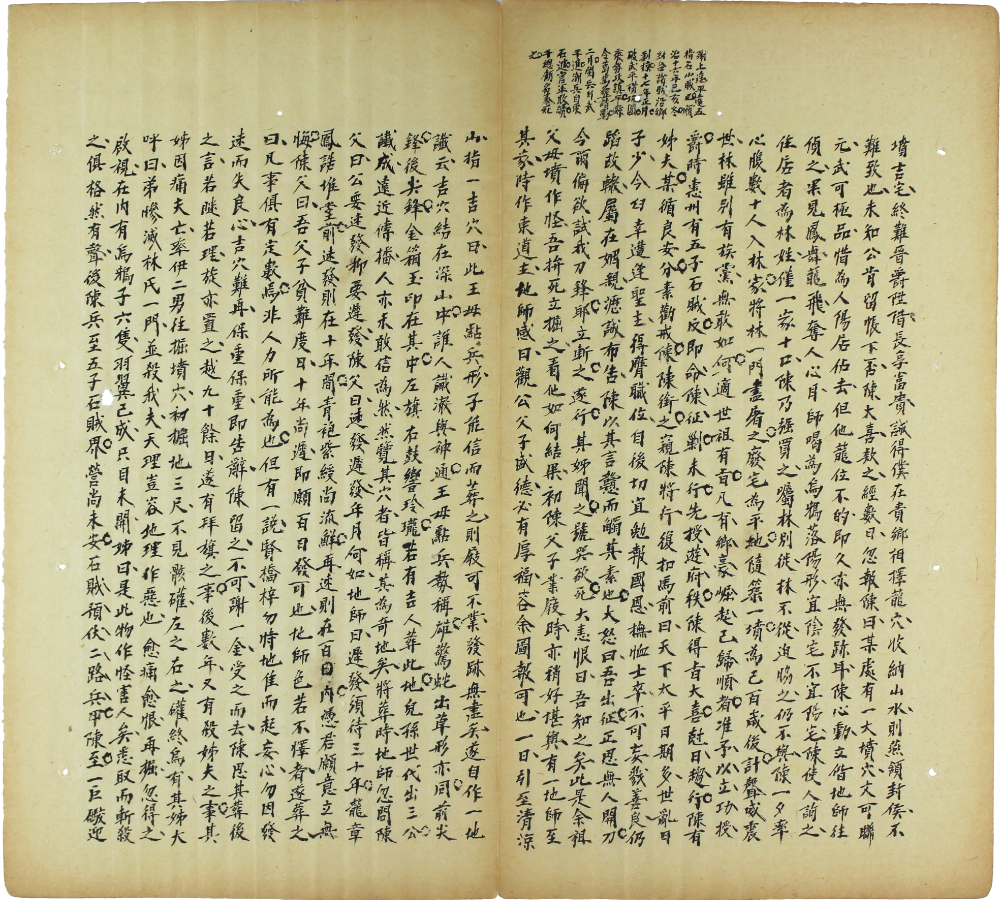 潮上遠平遠五
指石山賊也順
治十六年己亥冬
制穆十七年正月
二月備兵日武
墳吉宅終難晉爵陞階長享富貴誠得僕在貴鄉相擇龍穴收納山水則燕頷封侯不
難致也未知公肯留帳下否陳大喜款之經數日忽報陳曰某處有一大墳穴文可聯
元武可極品惜為人陽居佔去但他龍位不的即久亦無發跡耳陳心動立偕地師往
偵之果見鳳舞龍飛奪人心目師喝為烏鴉落陽形宜陰宅不宜陽宅陳使人詢之
住居者為林姓僅一家十口陳乃強買之囑林別徙林不從迫脅之仍不與陳一夕率
心腹數十人入林家將林一門盡屠之廢宅為平地隨築一墳為己百歲後計聲威震
世林雖別有族黨無敢如何適世祖有旨凡有鄉豪崛起已歸順者准予以立功授
爵時惠州有五子石賊反即命陳征剿未行先授遊府秩陳得旨大喜尅日趨行陳有
姊夫某循良安分素勸戒陳陳銜之窺陳將行復扣馬前曰天下太平日期多世亂日
子少今幻幸遭逢聖主得膺職位目後切宜勉報國恩撫恤士卒不可妄殺善良仍
蹈故轍屬在姻親瀝誠布告陳以其言戇而觸其素也大怒曰吾出征正愁無人開刀
今爾偏欲試我刀鋒耶立斬之遂行其姊聞之號哭欲死大恚恨曰吾知之矣此是余祖
父母墳作怪吾拚死立掘之看他如何結果初陳父子業廢時亦稍好堪輿有一地師至
其家時作東道主地師感曰觀公父子盛德必有厚福容余圖報可也一日引至清涼
山指一吉穴曰此王母點兵形子能信而葬之則廢可不業發跡無盡矣遂自作一地
讖云吉穴結在深山中誰人識漱與神通王母點兵教稱碓驚蛇出草形亦同前尖
鋒後尖鋒金箱玉印在其中左旗右鼓響玲瓏若有吉人葬此地兒孫世代出三公
讖成遠近傳播人亦未敢信為然然覽其穴者皆稱其為奇地矣將葬時地師忽問陳
父曰公要速發抑要遲發陳父曰速發遲發年月何如地師曰遲發須待三十年龍章
鳳誥堆堂前速發則在十年間青袍紫綬尚流鮮再速則在百日內憑君願意立無
悔陳父曰吾父子貧難度日十年尚遲即願百日發可也地師色若不懌者遂葬之
曰凡事俱有定數焉非人力所能為也但有一說賢橋梓勿恃地佳而起妄心勿因發
速而失良心吉穴難再保重保重即告辭陳留之不可謝一金受之而去陳思其葬後
之言若陡若理旋亦置之越九十餘日遂有拜旗之事後數年又有殺姊夫之事其
姊因痛夫亡率伊二男往掘墳穴初掘地三尺不見骸礶左之右之礶終烏有其姊大
呼曰弟慘滅林氏一門並殺我夫天理豈容地理作惡也愈痛愈恨再掘忽得之
啟視在內有烏鴉子六隻羽翼已成只目未開姊曰是此物作怪害人矣悉取而斬殺
之俱格然有聲後陳兵至五子石賊界營尚未安石賊預伏二路兵甲陳至一巨礮迎